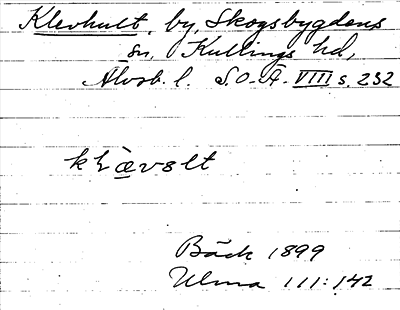 Klevhult, by, Skogsbygdens
sn, Kullings hd,
Älvsb. l. S.O.Ä. VIII s. 232
Bäck 1899
Ulma 111:142